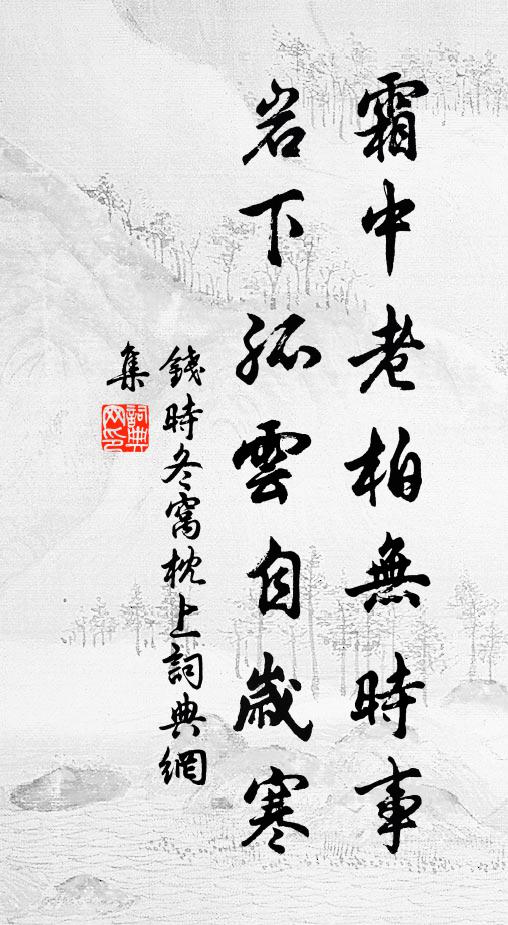 霜中老柏無時事
岩下孤雲自歲寒
錢時冬窩枕上詞典網
集
詞典
網印